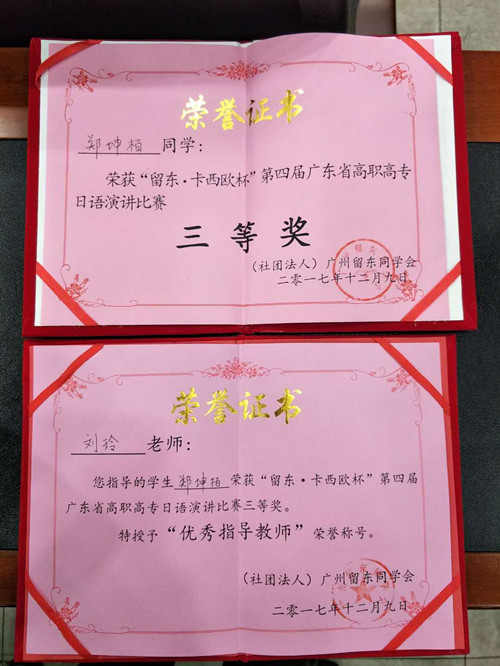 荣誉证书
郑坤楨 同学：
荣获“留东·卡西欧杯”第四届广东省高职高专
日语演讲比赛
三等奖
（社团法人）广州留东同学会
二零一七年十二月九日
荣誉证书
刘玲 老师：
您指导的学生郑坤栢荣获“留东·卡西欧杯”第四届
广东省高职高专日语演讲比赛三等奖。
特授予“优秀指导教师”荣誉称号。
（社团法人）广州留东同学会
二零一七年十二月九日